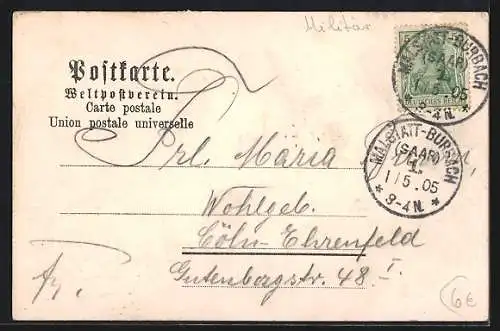 Militär
Postkarte.
Weltpostverein.
Carte postale
Union postale universelle
DEUTSCHES REICH
MALSTATT-BURBACH
(SAAR)
1/5.05
3-4N.
MALSTATT-BURBACH
(SAAR)
1.
1/5.05
* 3-4N. *
Frl. Maria
Wohlgeb.
Cöln-Ehrenfeld
Gutenbergstr. 48 I.
6€